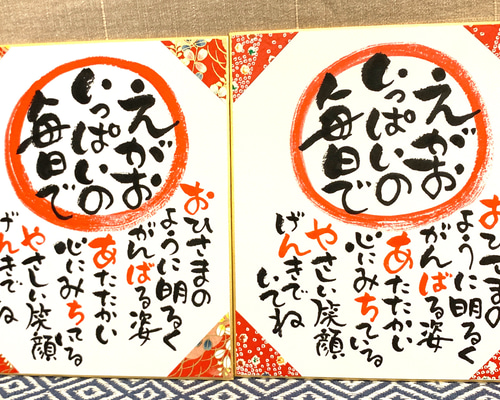 えがお
いっぱいの
毎日で
おひさまの
ように明るく
がんばる姿
あたたかい
心にみちている
やさしい笑顔
げんきでね
えがお
いっぱいの
毎日で
おひさまの
ように明るく
がんばる姿
あたたかい
心にみちている
やさしい笑顔
げんきでね
いてね